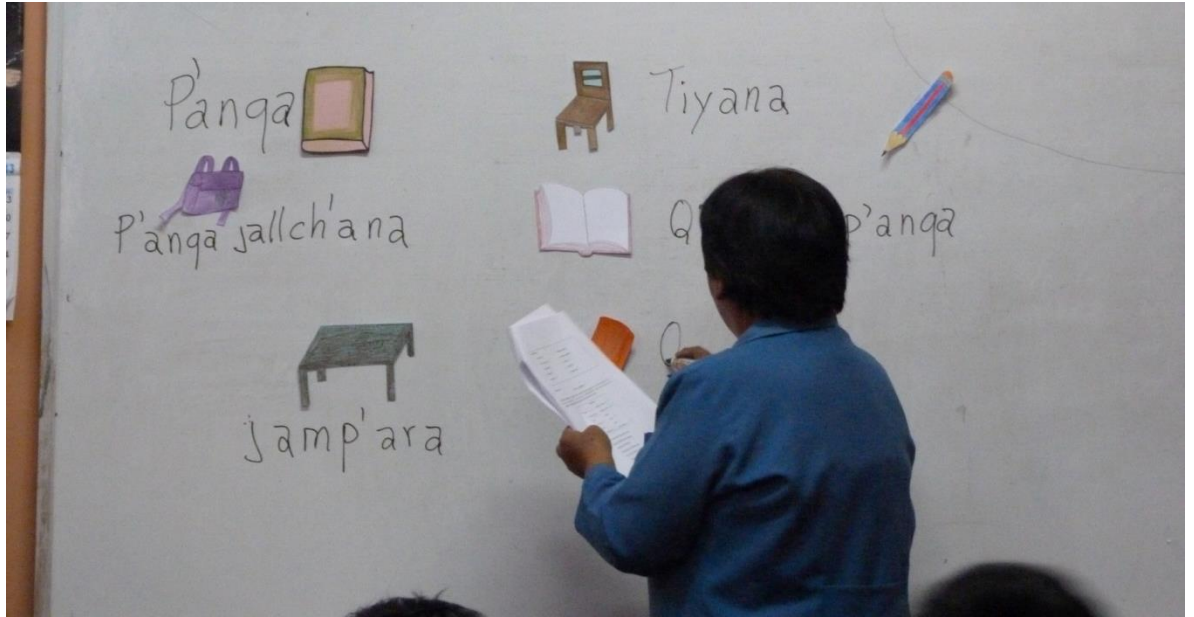 P'anqa
Tiyana
P'anqa jallch'ana
p'anqa
jamp'ara